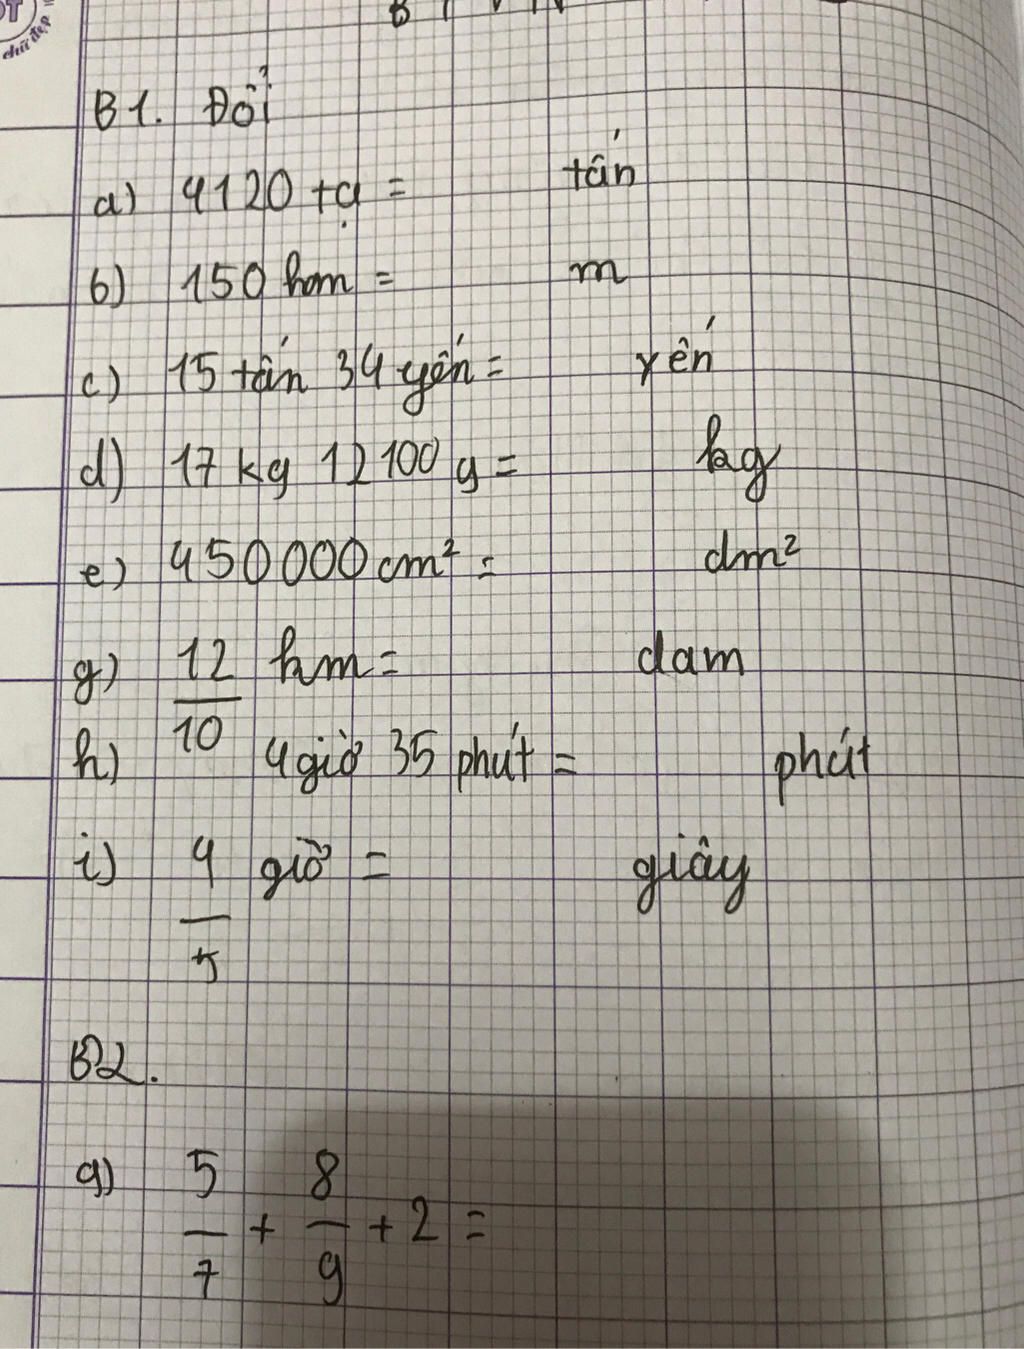 chữ đẹp
B1. Đổi
a) 4120 tạ = tấn
b) 150 hm = m
c) 15 tấn 34 yến = yến
d) 17 kg 12100 g = hg
e) 450000 cm² = dm²
g) 12/10 hm = dam
h) 4 giờ 35 phút = phút
i) 4/5 giờ = giây
B2.
a) 5/7 + 8/9 + 2 =